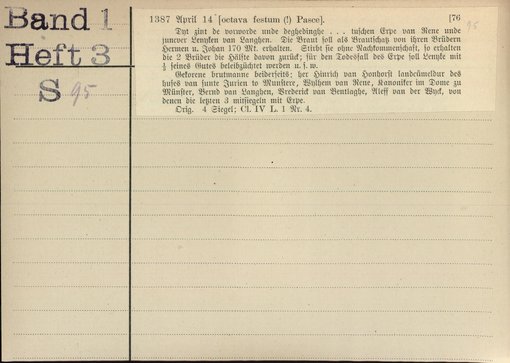 Band 1
Heft 3
S 95
1387 April 14 [octava festum (!) Pasce]. [76
95
Dyt zint de vorworde unde deghedinghe . . . tuschen Erpe van Rene unde
juncver Lenyken van Langhen. Die Braut soll als Brautschatz von ihren Brüdern
Hermen u. Johan 170 Mt. erhalten. Stirbt sie ohne Nachkommenschaft, so erhalten
die 2 Brüder die Hälfte davon zurück; für den Todesfall des Erpe soll Lenyke mit
seines Gutes beleibzüchtet werden u. s. w.
Gekorene brutmanne beiderseits: her Hinrich van Honhorst landcümeldur des
huses van sunte Jurien to Munstere, Wylhem van Rene, Kanoniker im Dome zu
Münster, Bernd van Langhen, Brederick van Bentlaghe, Aleff van der Wyck, von
denen die letzten 3 mitsiegeln mit Erpe.
Orig. 4 Siegel; Cl. IV L. 1 Nr. 4.